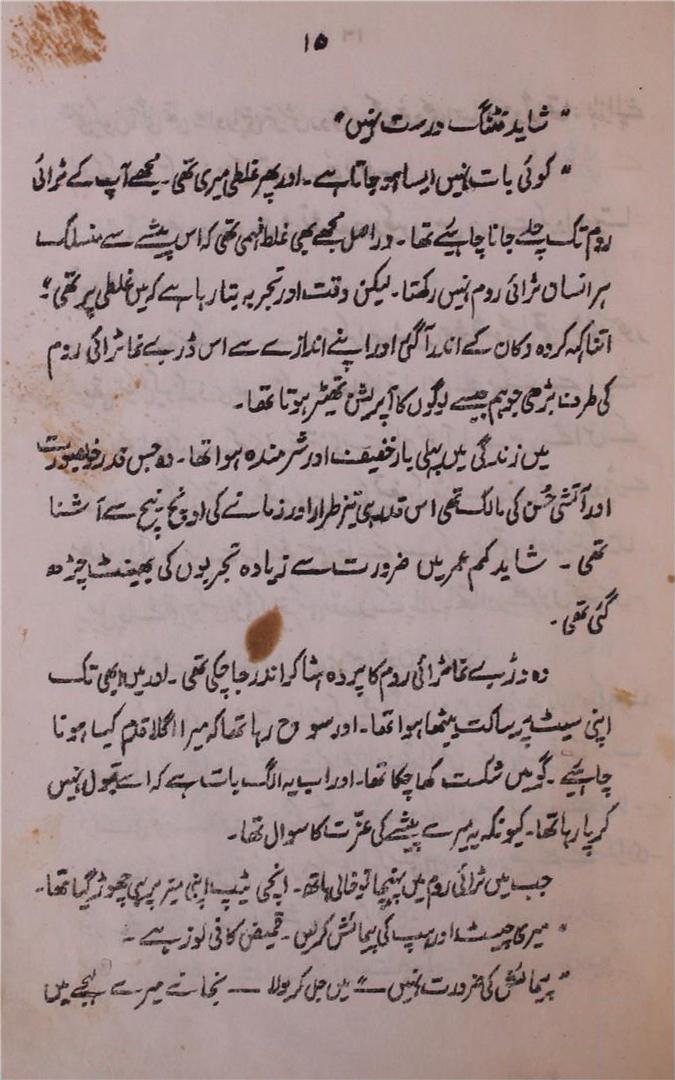 ۱۵
" شاید فٹنگ درست نہیں "
" کوئی بات نہیں ایسا ہو جاتا ہے ۔ اور پھر غلطی میری تھی ۔ مجھے آپ کے ٹرائی
روم تک چلے جانا چاہیئے تھا ۔ دراصل مجھے بھی غلط فہمی تھی کہ اس پیشے سے منسلک
ہر انسان ٹرائی روم نہیں رکھتا ۔ لیکن وقت اور تجربہ بتا رہا ہے کہ میں غلطی پر تھی "
اتنا کہہ کر وہ دکان کے اندر آ گئی اور اپنے اندازے سے اس ڈربے نما ٹرائی روم
کی طرف بڑھی جو ہم جیسے لوگوں کا آپریشن تھیٹر ہوتا تھا ۔
میں زندگی میں پہلی بار خفیف اور شرمندہ ہوا تھا ۔ وہ جس قدر خوبصورت
اور آتشی حُسن کی مالک تھی اس قدر ہی تیز طرار اور زمانے کی اونچ نیچ سے آشنا
تھی ۔ شاید کم عمر میں ضرورت سے زیادہ تجربوں کی بھینٹ چڑھ
گئی تھی ۔
وہ دڑبے نما ٹرائی روم کا پردہ ہٹا کر اندر جا چکی تھی ۔ اور میں ابھی تک
اپنی سیٹ پر ساکت بیٹھا ہوا تھا ۔ اور سوچ رہا تھا کہ میرا اگلا قدم کیا ہونا
چاہیئے ۔ گو میں شکست کھا چکا تھا ۔ اور اب یہ الگ بات ہے کہ اسے قبول نہیں
کر پا رہا تھا ۔ کیونکہ یہ میرے پیشے کی عزّت کا سوال تھا ۔
جب میں ٹرائی روم میں پہنچا تو خالی ہاتھ ۔ انچی ٹیپ اپنی میز پر ہی چھوڑ گیا تھا ۔
" میری چیسٹ اور ہپ کی پیمائش کر لیں ۔ قمیض کافی لوز ہے ۔
" پیمائش کی ضرورت نہیں " میں جل کر بولا — نجانے میرے لہجے میں